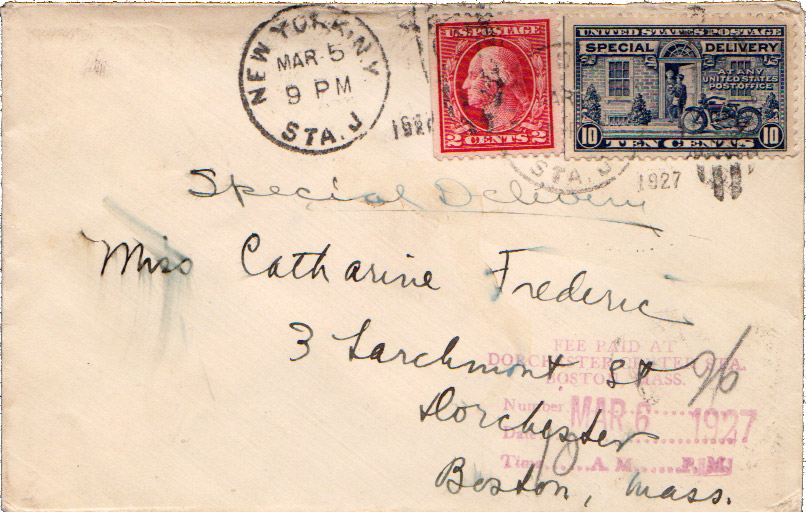 NEW YORK, N.Y.
MAR. 5
9 PM
STA. J
U.S. POSTAGE
2 CENTS 2
UNITED STATES POSTAGE
SPECIAL DELIVERY
AT ANY
UNITED STATES
POST OFFICE
10 TEN CENTS 10
STA. J
1927
Special Delivery
Miss Catharine Frederic
3 Larchmont St
Dorchester
Boston, Mass.
FEE PAID AT
DORCHESTER STA.
BOSTON, MASS.
Number
MAR 6 1927
Date
Time A M P.M.